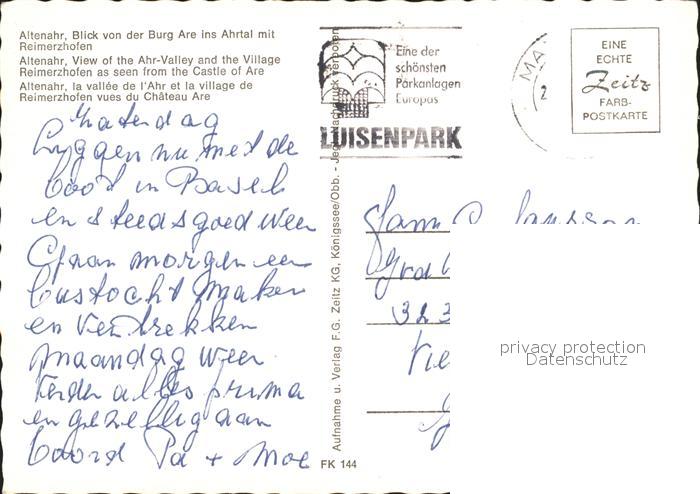 Altenahr, Blick von der Burg Are ins Ahrtal mit
Reimerzhofen
Altenahr, View of the Ahr-Valley and the Village
Reimerzhofen as seen from the Castle of Are
Altenahr, la vallée de l'Ahr et la village de
Reimerzhofen vues du Château Are
Zaterdag
Liggen nu met de
boot in Basel
en steeds goed weer
Gaan morgen een
bustocht maken
en vertrekken
maandag weer
Verder alles prima
en gezellig aan
boord Pa + Moe
Eine der
schönsten
Parkanlagen
Europas
LUISENPARK
MA
2
EINE
ECHTE
Zeitz
FARB-
POSTKARTE
Aufnahme u. Verlag F.G. Zeitz KG, Königssee/Obb. - Jeg Nachdruck verboten
FK 144
Fam
323
privacy protection
Datenschutz